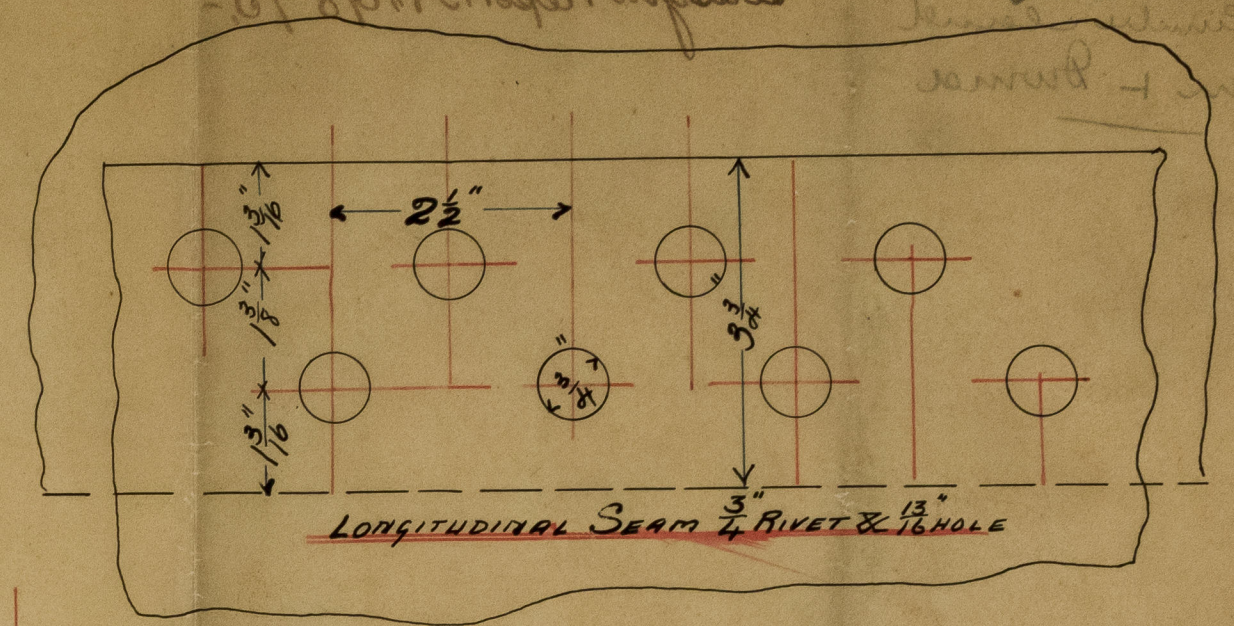 1 3/16"
2 1/2"
1 3/8"
3 3/4"
3/4"
1 3/16"
LONGITUDINAL SEAM 3/4" RIVET & 13/16" HOLE